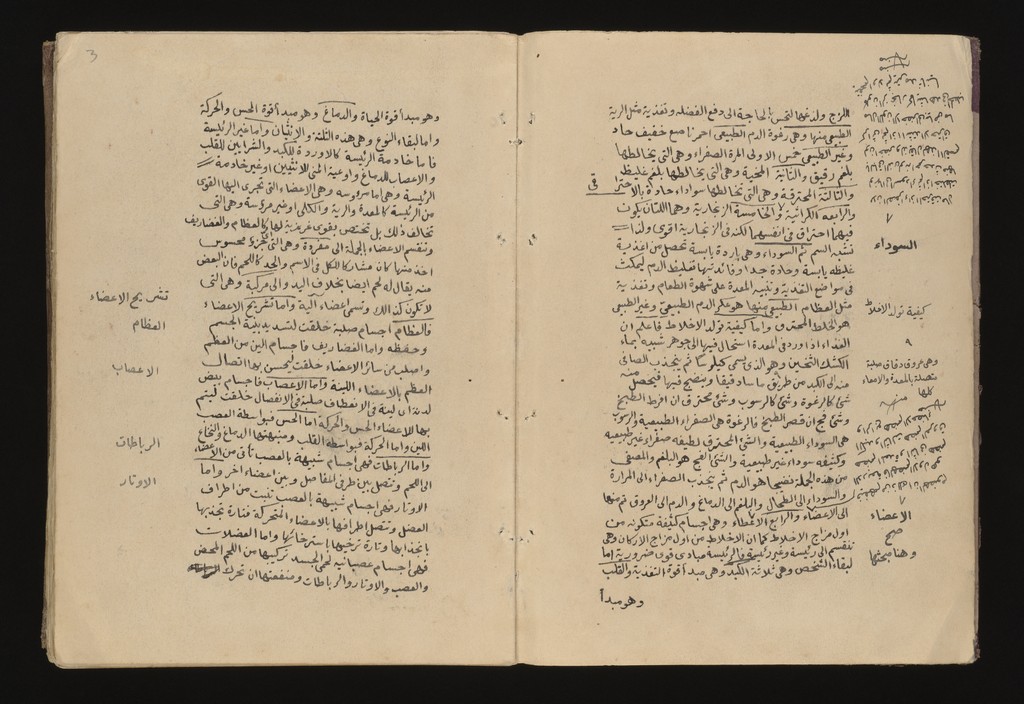 اللزج ولذعها لتحس الحاجة الى دفع الفضلة وتغذية مثل الرية
الطبيعي منها وهي رغوة الدم الطبيعي احمر ناصع خفيف حاد
وغير الطبيعي خمس الاولى المرة الصفراء وهي التي يخالطها
بلغم رقيق والثانية المحية وهي التي يخالطها بلغم غليظ
والثالثة المحترقة وهي التي تخالطها سوداء حادة بالاحترا ق
والرابعة الكراثية والخامسة الزنجارية وهما اللتان يكون
فيهما احتراق في انفسهما لكنه في الزنجارية اقوى ولذا
تشبه السم ثم السوداء وهي باردة يابسة تحصل من اغذية
غليظة يابسة وحادة جدا وفائدتها تغليظ الدم ليمكث
في مواضع التغذية وتنبيه المعدة على شهوة الطعام وتغذية
مثل العظام الطبيعي منها هو عكر الدم الطبيعي وغير الطبيعي
هو الخلط المحترق واما كيفية تولد الاخلاط فاعلم ان
الغذاء اذا ورد في المعدة استحال فيها الى جوهر شبيه بماء
الكشك الثخين وهو الذي يسمى كيلوسا ثم ينجذب الصافي
منه الى الكبد من طريق ماساريقا وينضج فيها فيحصل منه
شئ كالرغوة وشئ كالرسوب وشئ محترق ان افرط الطبخ
وشئ فج ان قصر الطبخ فالرغوة هي الصفراء الطبيعية والرسوب
هي السوداء الطبيعية والشئ المحترق لطيفه صفراء غير طبيعية
وكثيفه سوداء غير طبيعية والشئ الفج هو البلغم والمصفى
من هذه الجملة نضيجا هو الدم ثم ينجذب الصفراء الى المرارة
والسوداء الى الطحال والبلغم الى الدماغ والدم الى العروق ثم منها
الى الاعضاء والرابع الاعضاء وهي اجسام كثيفة متكونة من
اول مزاج الاخلاط كما ان الاخلاط من اول مزاج الاركان وهي
تنقسم الى رئيسة وغير رئيسة والرئيسة مبادى قوى ضرورية اما
لبقاء الشخص وهي ثلاثة الكبد وهي مبدأ قوة التغذية والقلب
وهو مبدأ
السوداء
كيفية تولد الاخلاط
وهي عروق دقاق صلبة
متصلة بالمعدة والامعاء
كلها
الاعضاء
صح
وهنا مبحثها
3
وهو مبدأ قوة الحياة والدماغ وهو مبدأ قوة الحس والحركة
واما لبقاء النوع وهي هذه الثلثة والانثيان واما غير الرئيسة
فاما خادمة الرئيسة كالاوردة للكبد والشرايين للقلب
والاعصاب للدماغ واوعية المني للانثيين او غير خادمة
الرئيسة وهي اما مرءوسه وهي الاعضاء التي تجري اليها القوى
من الرئيسة كالمعدة والرية والكلى او غير مرءوسة وهي التي
تخالف ذلك بل تختص بقوى غريزية لها كالعظام والغضاريف
وتنقسم الاعضاء بالجملة الى مفردة وهي التي اي جزء محسوس
اخذ منها كان مشاركا للكل في الاسم والحد كاللحم فان البعض
منه يقال له لحم ايضا بخلاف اليد والى مركبة وهي التي
لا تكون كذالك وتسمى اعضاء آلية واما تشريح الاعضاء
فالعظام اجسام صلبة خلقت لتشيد بنية الجسم
وحفظه واما الغضاريف فاجسام الين من العظم
واصلب من سائر الاعضاء خلقت ليحسن بها اتصال
العظم بالاعضاء اللينة واما الاعصاب فاجسام بيض
لدنة لينة في الانعطاف صلبة في الانفصال خلقت ليتم
بها للاعضاء الحس والحركة اما الحس فبواسطة العصب
اللين واما الحركة فبواسطة القلب ومنبتها الدماغ والنخاع
واما الرباطات فهي اجسام شبيهة بالعصب تأتي من الاعضاء
الى اللحم وتصل بين طرفي المفاصل وبين اعضاء اخر واما
الاوتار فهي اجسام شبيهة بالعصب تنبت من اطراف
العضل وتتصل اطرافها بالاعضاء المتحركة فتارة تجذبها
بانجذابها وتارة ترخيها باسترخائها واما العضلات
فهي اجسام عصبانيه لحم الجسد تركيبها من اللحم المحض
والعصب والاوتار والرباطات ومنفعتها ان تحرك
تشريح الاعضاء
العظام
الاعصاب
الرباطات
الاوتار